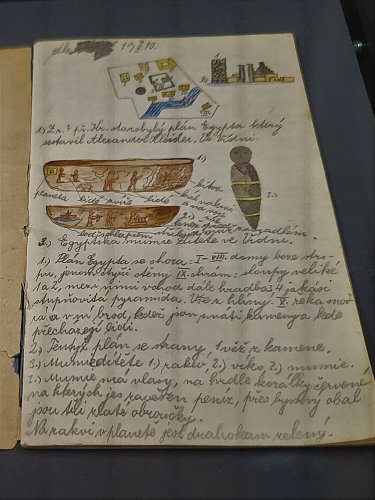 19 10.
2.)
1.) Z r. ? př. Kr. starobylý plán Egypta který
sestavil Alexandr Kloider, Ve Vídni.
1.)
bitva
planeta lidé zvíře lidé král
a na voze
3.)
2.) Egyptská mumie dítěte ve Vídni.
1.) Plán Egypta se shora: I - VIII. domy beze stro-
pu, jenom čtyři stěny IX. chrám: sloupy veliké
1 a 2, mezi nimi vchod dále hradba 3 4 jakási
stupňovitá pyramida. Vše z hlíny. V. řeka mod-
rá a v ní brod, kdež jsou znáti kameny a kde
přecházejí lidi.
2.) Tentýž plán se strany, 1 věž z kamene.
3.) Mumie dítěte 1.) rakev 2.) víko, 3.) mumie.
3.) Mumie má vlasy, na hrdle korálky červené
na kterých jest zavěšen peníz, přes byssový obal
jsou tři zlaté obroučky.
Na rakvi v planetě jest drahokam zelený.